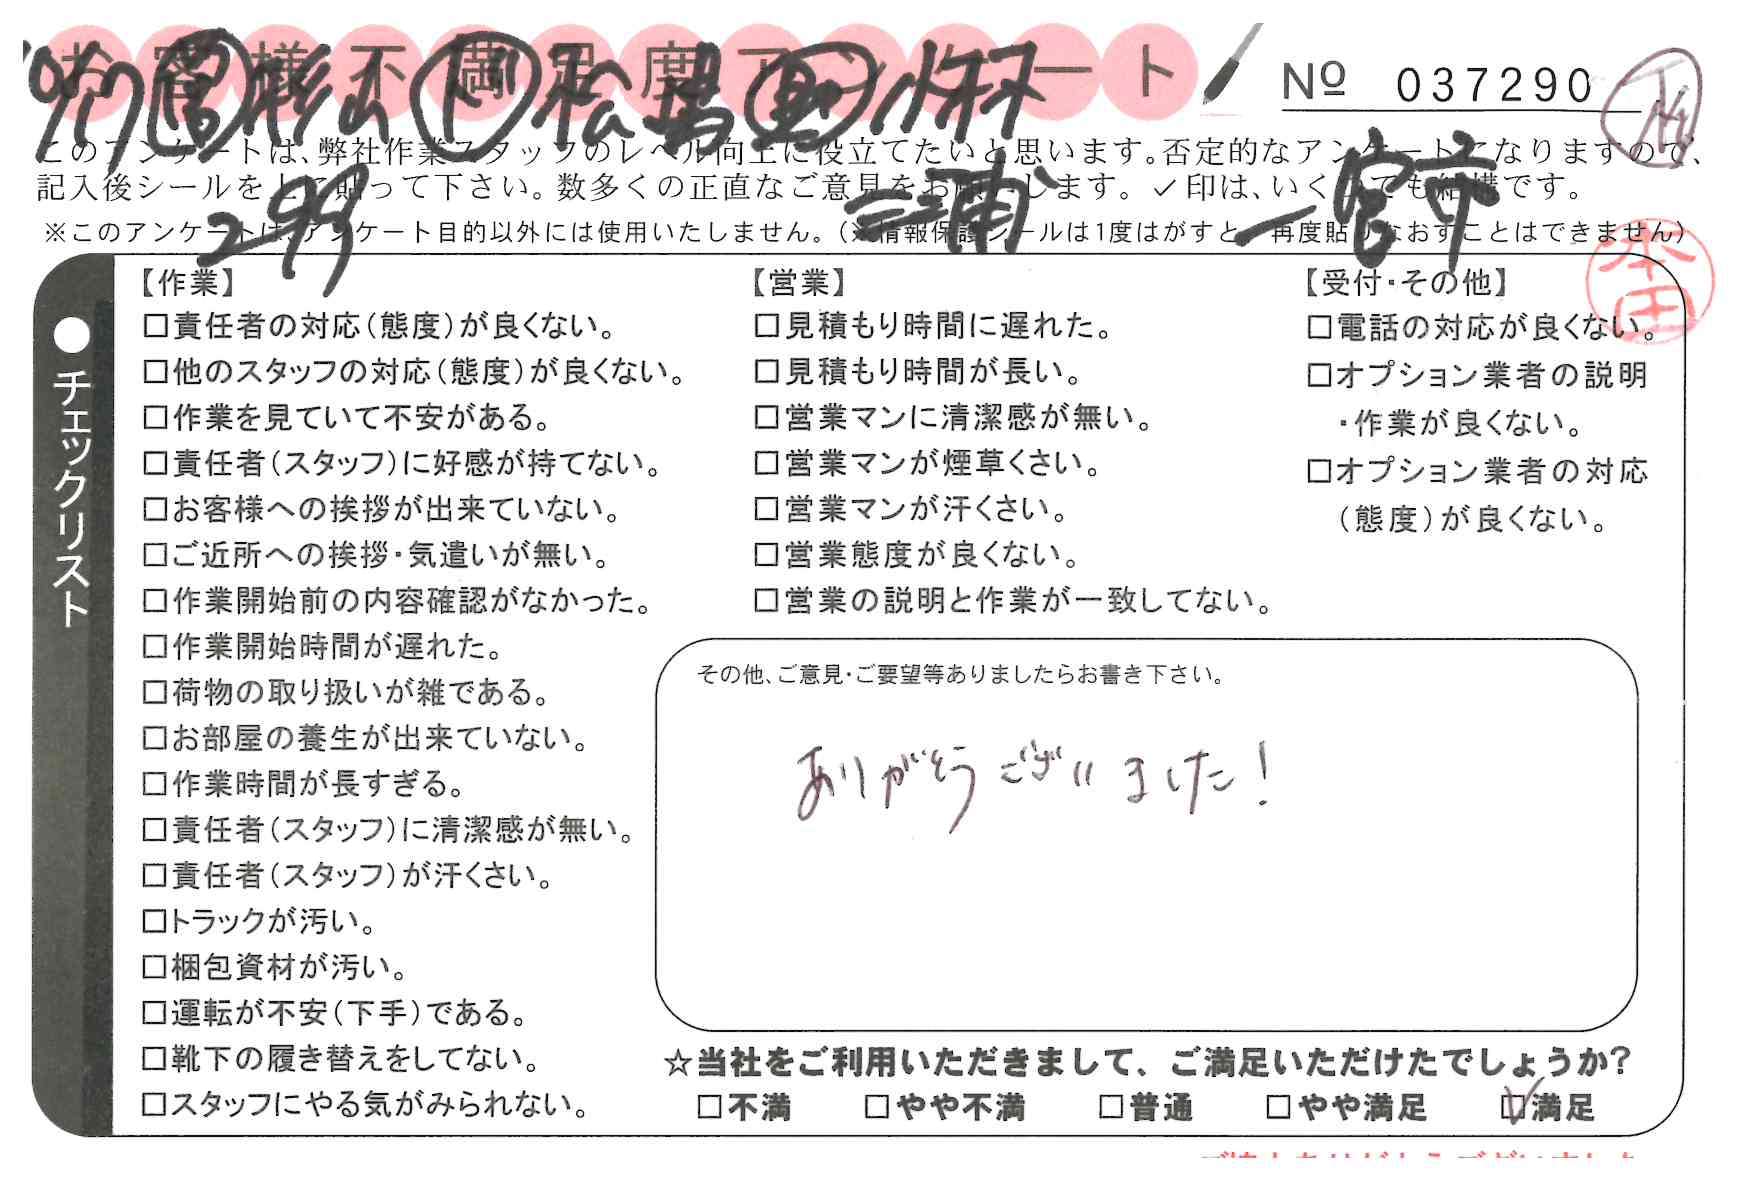 お客様不満足度アンケート
№ 037290
9/17 営 杉山 ド 松島 助 小林
299 三浦 一宮市
このアンケートは、弊社作業スタッフのレベル向上に役立てたいと思います。否定的なアンケートになりますので、
記入後シールを上に貼って下さい。数多くの正直なご意見をお願いします。✓印は、いくつでも結構です。
※このアンケートは、アンケート目的以外には使用いたしません。(※情報保護シールは1度はがすと、再度貼りなおすことはできません)
本田
●チェックリスト
【作業】
□責任者の対応(態度)が良くない。
□他のスタッフの対応(態度)が良くない。
□作業を見ていて不安がある。
□責任者(スタッフ)に好感が持てない。
□お客様への挨拶が出来ていない。
□ご近所への挨拶・気遣いが無い。
□作業開始前の内容確認がなかった。
□作業開始時間が遅れた。
□荷物の取り扱いが雑である。
□お部屋の養生が出来ていない。
□作業時間が長すぎる。
□責任者(スタッフ)に清潔感が無い。
□責任者(スタッフ)が汗くさい。
□トラックが汚い。
□梱包資材が汚い。
□運転が不安(下手)である。
□靴下の履き替えをしてない。
□スタッフにやる気がみられない。
【営業】
□見積もり時間に遅れた。
□見積もり時間が長い。
□営業マンに清潔感が無い。
□営業マンが煙草くさい。
□営業マンが汗くさい。
□営業態度が良くない。
□営業の説明と作業が一致してない。
【受付・その他】
□電話の対応が良くない。
□オプション業者の説明
・作業が良くない。
□オプション業者の対応
(態度)が良くない。
その他、ご意見・ご要望等ありましたらお書き下さい。
ありがとうございました！
☆当社をご利用いただきまして、ご満足いただけたでしょうか?
□不満 □やや不満 □普通 □やや満足 ☑満足